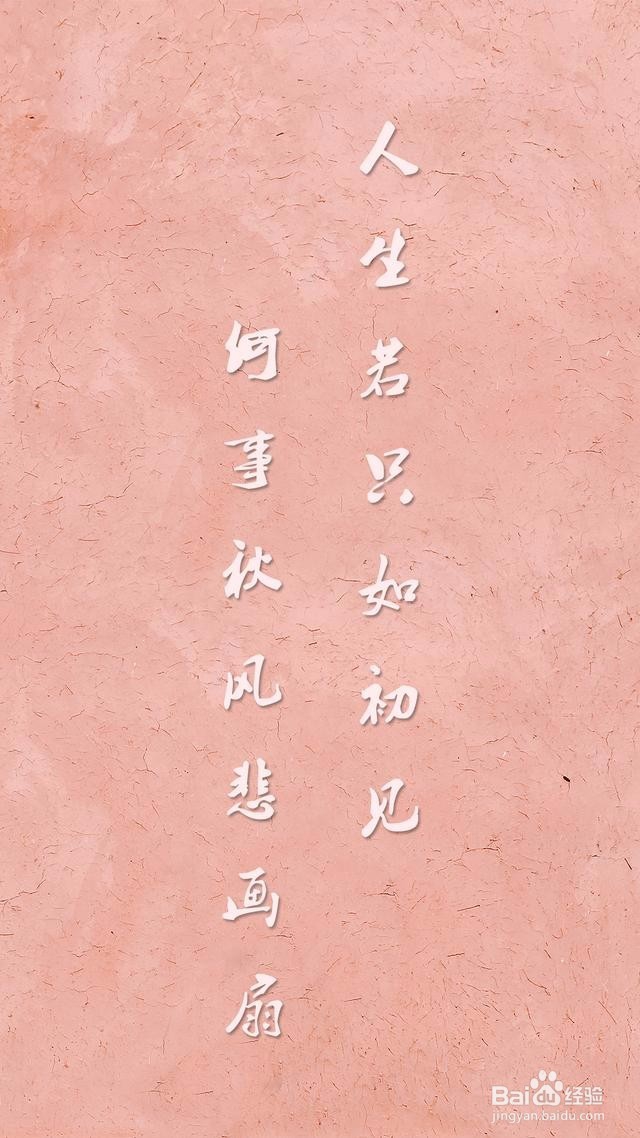 人生若只如初见
何事秋风悲画扇
Baidu经验
jingyan.baidu.com